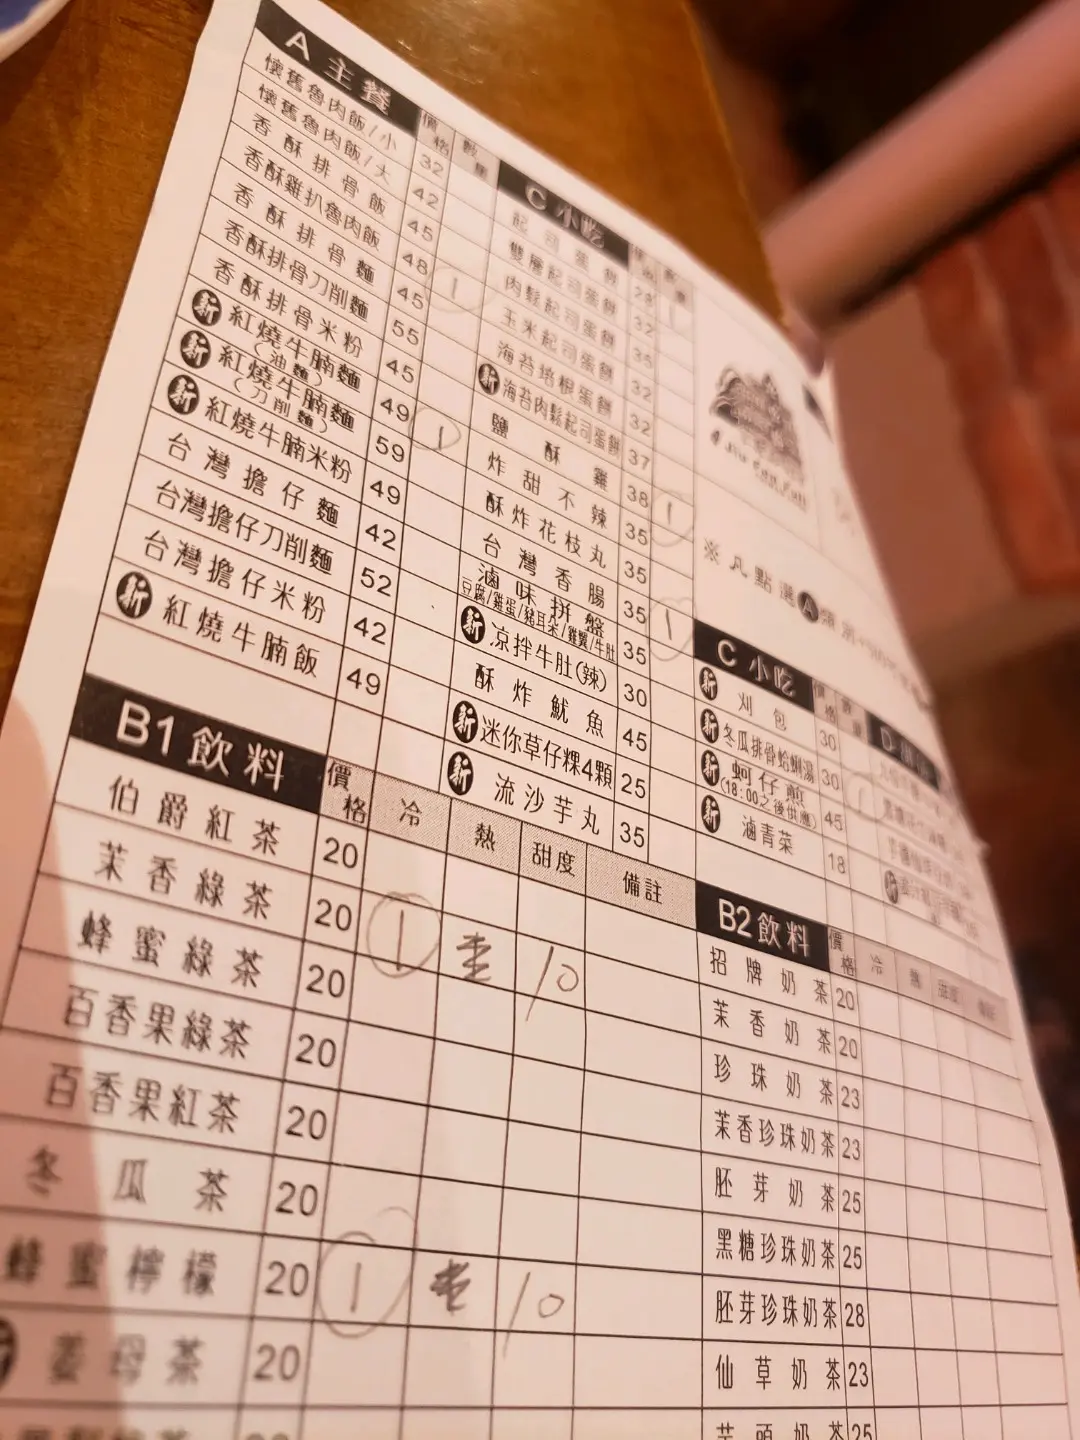 A 主餐 價格 數量
懷舊魯肉飯/小 32
懷舊魯肉飯/大 42
香酥排骨飯 45
香酥雞扒魯肉飯 48 1
香酥排骨麵 45
香酥排骨刀削麵 55
香酥排骨米粉 45
新 紅燒牛腩麵(油麵) 49 1
新 紅燒牛腩麵(刀削麵) 59
新 紅燒牛腩米粉 49
台灣擔仔麵 42
台灣擔仔刀削麵 52
台灣擔仔米粉 42
新 紅燒牛腩飯 49
C 小吃
起司蛋餅 28 1
雙層起司蛋餅 32
肉鬆起司蛋餅 35
玉米起司蛋餅 32
海苔培根蛋餅 32
新 海苔肉鬆起司蛋餅 37
鹽酥雞 38 1
炸甜不辣 35
酥炸花枝丸 35
台灣香腸 35 1
滷味拼盤 35
豆腐/雞蛋/豬耳朵/雞翼/牛肚
新 凉拌牛肚(辣) 30
酥炸魷魚 45
新 迷你草仔粿4顆 25
新 流沙芋丸 35
※凡點選A
C 小吃
新 刈包 30
新 冬瓜排骨蛤蜊湯 30
新 蚵仔煎 45
(18:00之後供應)
新 滷青菜 18
B1飲料 價格 冷 熱 甜度 備註
伯爵紅茶 20
茉香綠茶 20 1 10
蜂蜜綠茶 20
百香果綠茶 20
百香果紅茶 20
冬瓜茶 20
蜂蜜檸檬 20 1 10
姜母茶 20
B2飲料 價格 冷 熱 甜度
招牌奶茶 20
茉香奶茶 20
珍珠奶茶 23
茉香珍珠奶茶 23
胚芽奶茶 25
黑糖珍珠奶茶 25
胚芽珍珠奶茶 28
仙草奶茶 23
芋頭奶茶 25